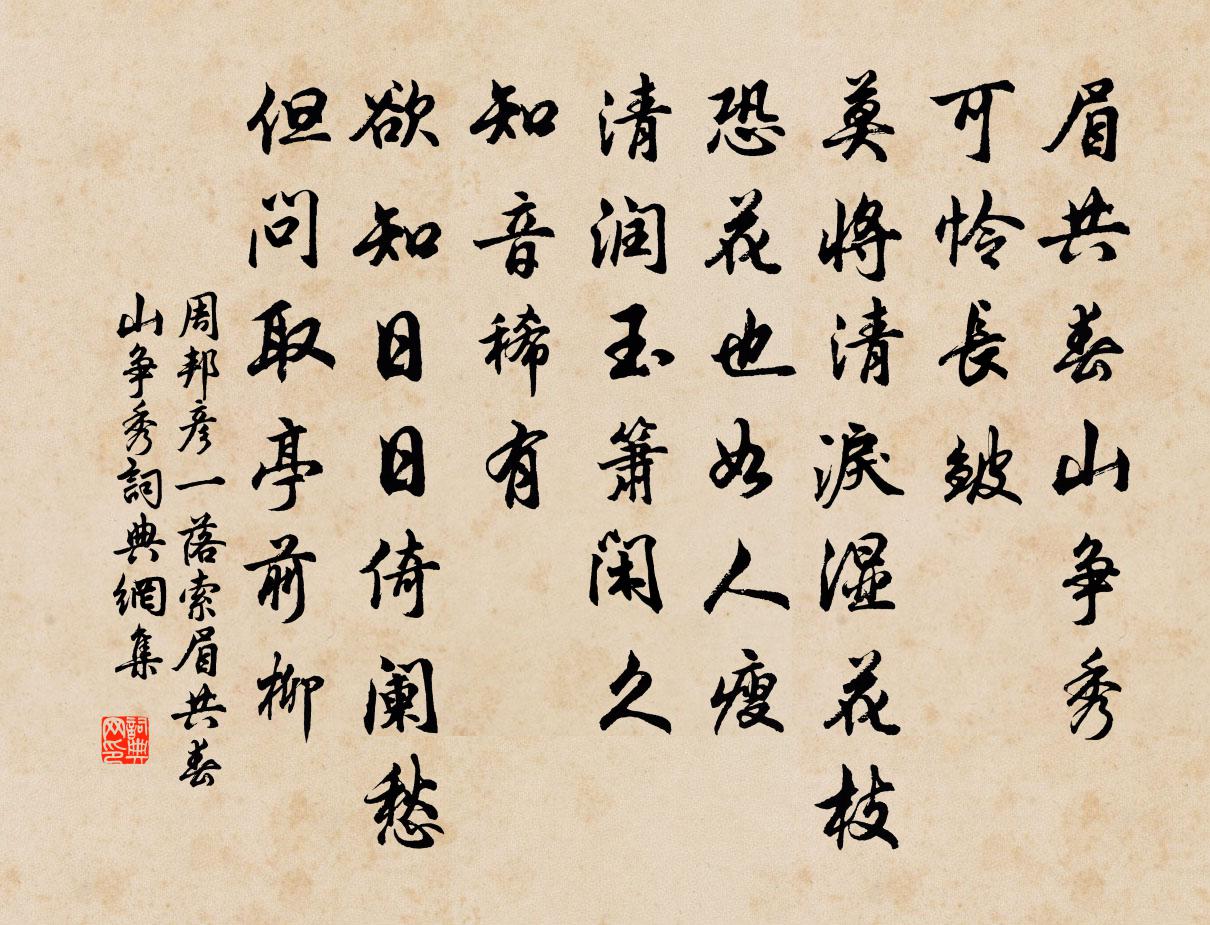 眉共春山争秀
可怜長皺
莫將清淚湿花枝
恐花也如人瘦
清润玉箫閑久
知音稀有
欲知日日倚阑愁
但问取亭前柳
周邦彦一落索眉共春
山争秀詞典網集
詞典网印